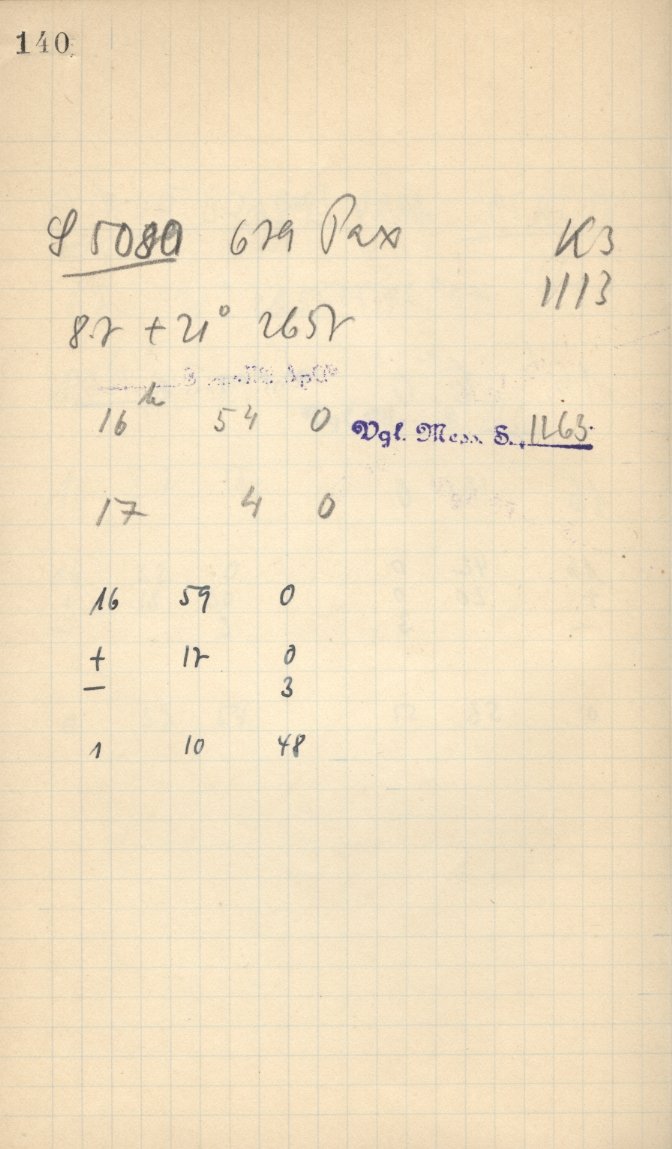 140
S 5080 679 Pax K3
1113
8.2 +21° 2652
16 h 54 0 Vgl. Mess. S.
17 4 0
16 59 0
+ 12 0
− 3
1 10 48